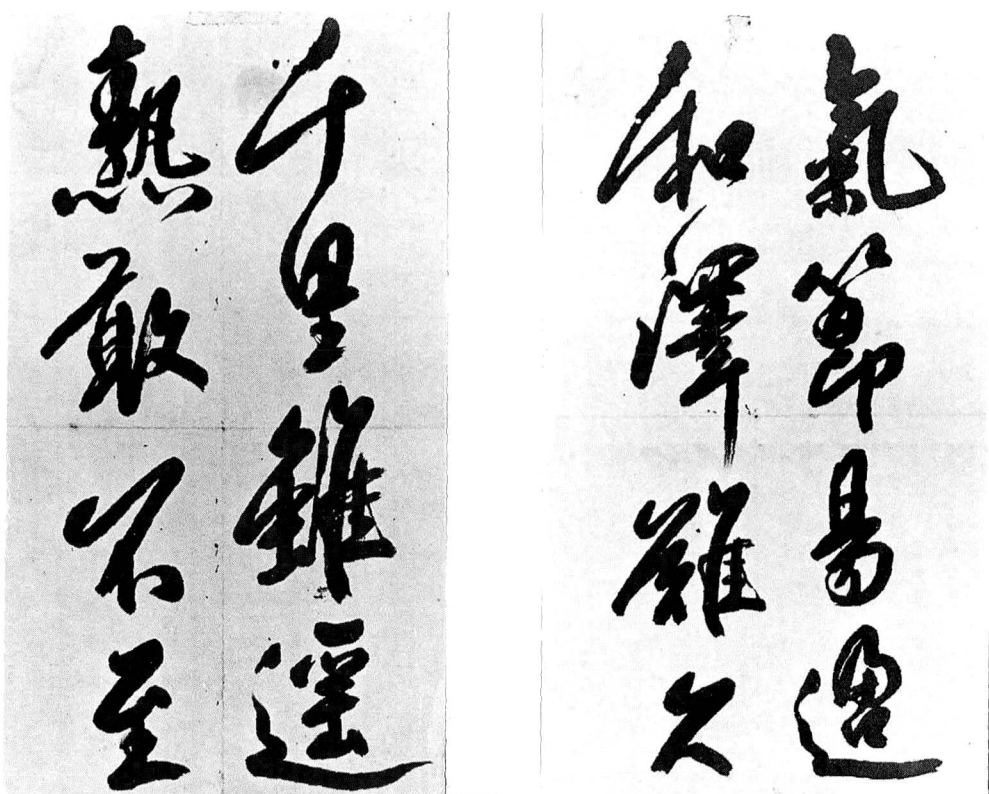 氣節易過
和澤難久
千里雖遥
熟敢不至